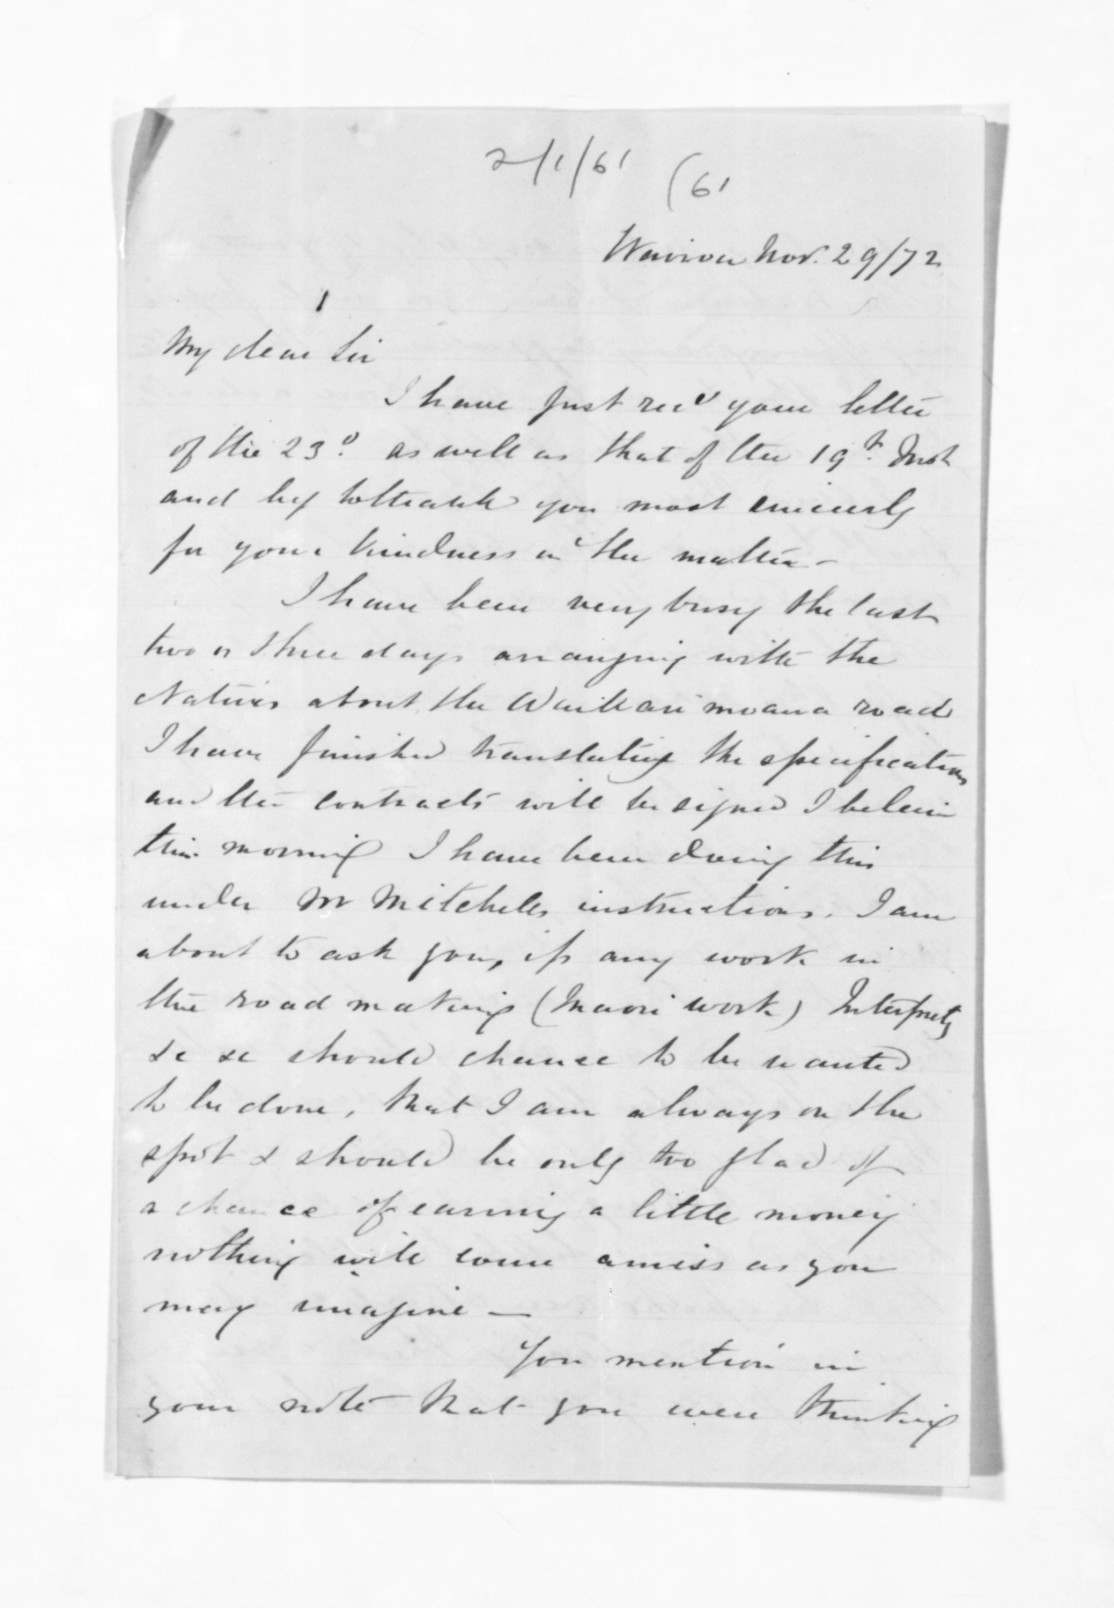 2/1/61 (61
Wairoa Nov. 29/72
1
My dear Sir
I have just recd your letter
of the 23d. as well as that of the 19th. Inst
and beg to thank you most sincerely
for your kindness in the matter -
I have been very busy the last
two or three days arranging with the
Natives about the Waikari moana road
I have finished translating the specifications
and the contracts will be signed I beleive
this morning I have been doing this
under Mr Mitchells instructions. I am
about to ask you, if any work in
the road making (Maori work) Interpretg
&c &c should chance to be wanted
to be done, that I am always on the
spot & should be only too glad of
a chance of earning a little money
nothing will come amiss as you
may imagine —
You mention in
your note that you were thinking